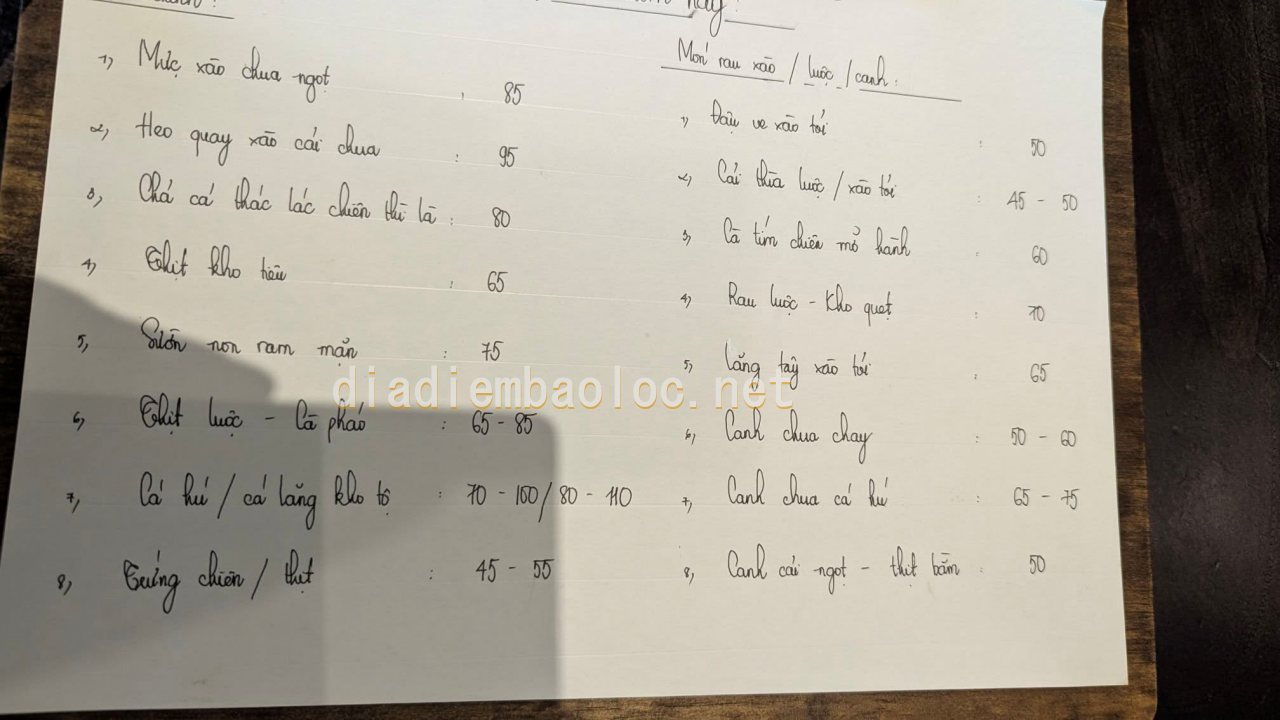 này:
1) Mực xào chua ngọt : 85
2) Heo quay xào cải chua : 95
3) Chả cá thác lác chiên thì là : 80
4) Thịt kho tiêu : 65
5) Sườn non ram mặn : 75
6) Thịt luộc - Cà pháo : 65 - 85
7) Cá hú / cá lăng kho tộ : 70 - 100 / 80 - 110
8) Trứng chiên / thịt : 45 - 55
Món rau xào / luộc / canh :
1) Đậu ve xào tỏi : 50
2) Cải thìa luộc / xào tỏi : 45 - 50
3) Cà tím chiên mỡ hành : 60
4) Rau luộc - Kho quẹt : 70
5) Măng tây xào tỏi : 65
6) Canh chua chay : 50 - 60
7) Canh chua cá hú : 65 - 75
8) Canh cải ngọt - thịt bằm : 50
diadiembaoloc.net